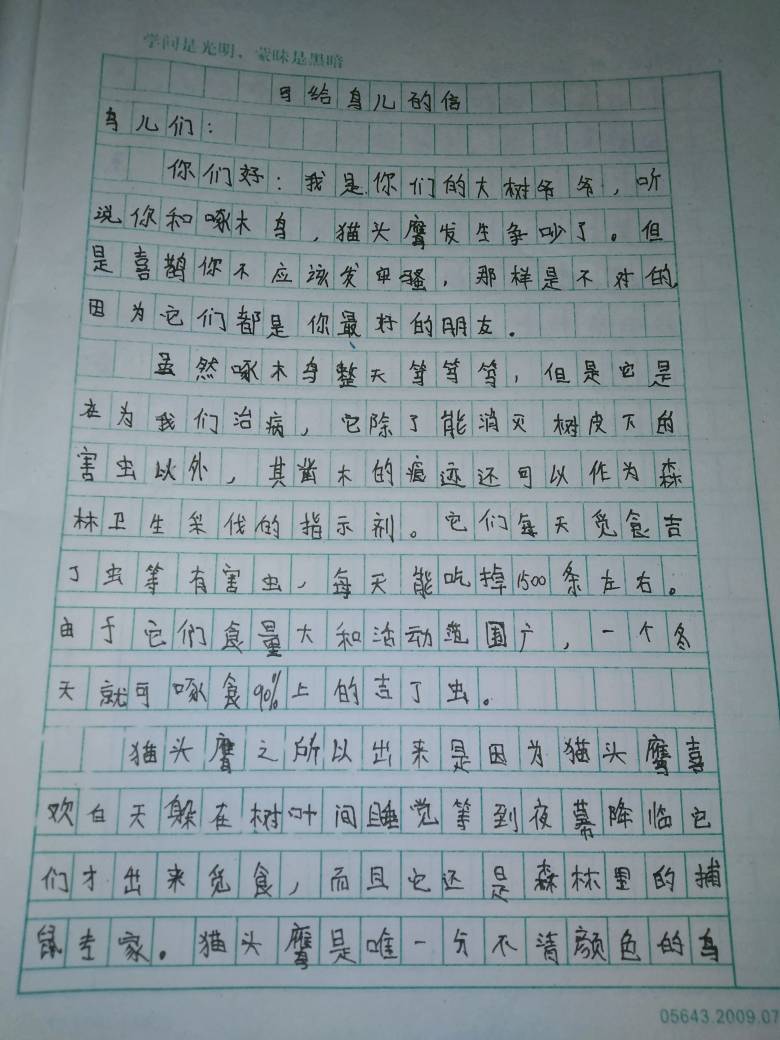 学问是光明，蒙昧是黑暗
写给鸟儿的信
鸟儿们：
你们好：我是你们的大树爷爷，听
说你和啄木鸟，猫头鹰发生争吵了。但
是喜鹊你不应该发牢骚，那样是不对的,
因为它们都是你最好的朋友.
虽然啄木鸟整天等等等，但是它是
在为我们治病，它除了能消灭树皮下的
害虫以外，其凿木的痕迹还可以作为森
林卫生采伐的指示剂。它们每天觅食吉
丁虫等有害虫，每天能吃掉1500条左右。
由于它们食量大和活动范围广，一个冬
天就可啄食90%上的吉丁虫。
猫头鹰之所以出来是因为猫头鹰喜
欢白天躲在树叶间睡觉等到夜幕降临它
们才出来觅食，而且它还是森林里的捕
鼠专家。猫头鹰是唯一分不清颜色的鸟
05643.2009.07